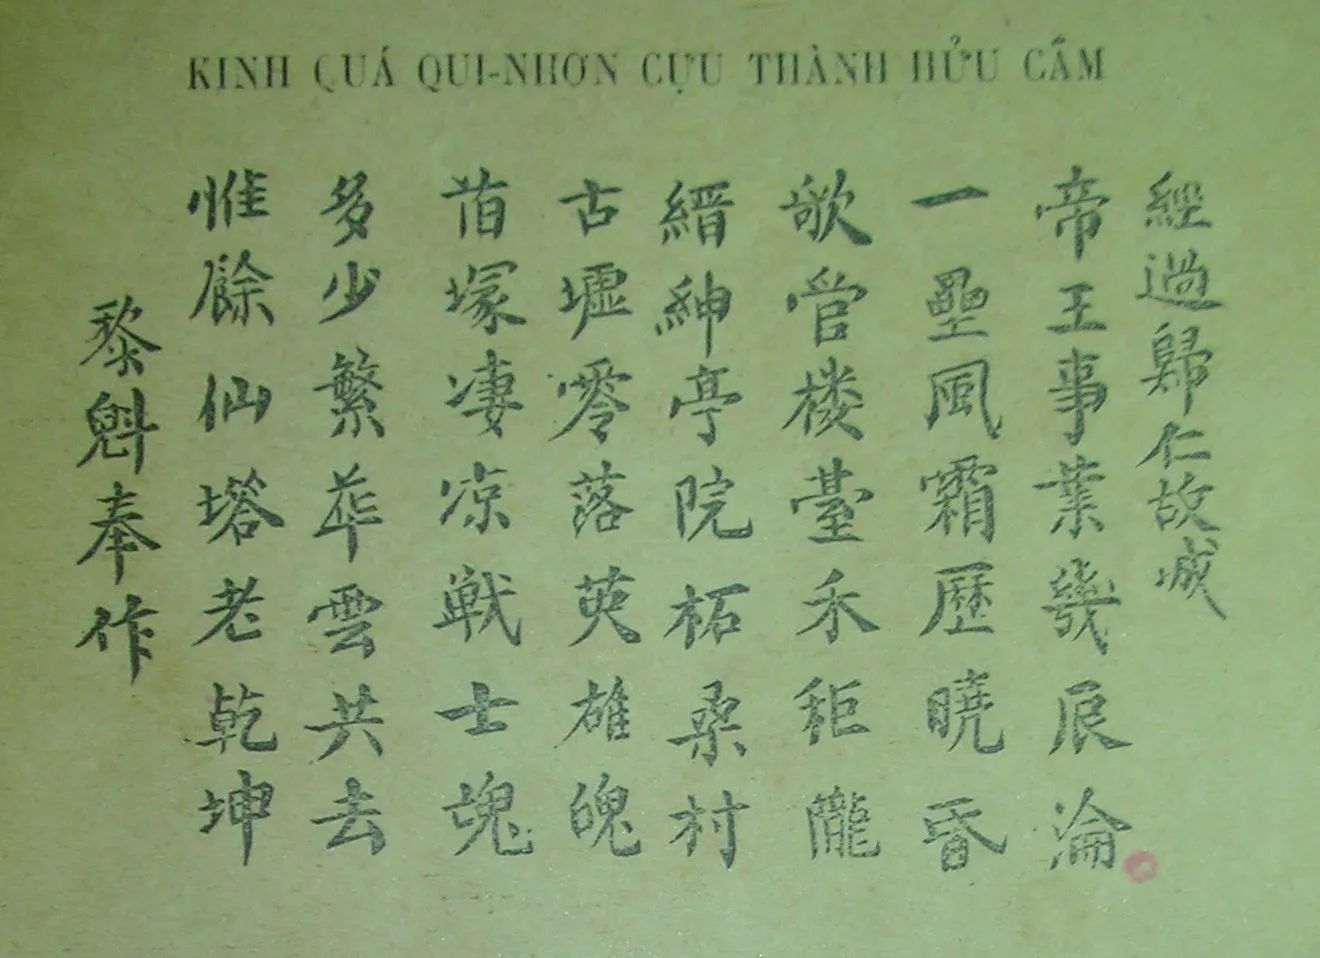 KINH QUÁ QUI-NHƠN CỰU THÀNH HỬU CẢM
經過歸仁故城
帝王事業幾辰淪
一壘風霜歷曉昏
歌管楼臺禾秬隴
縉紳亭院柘桑村
古墟零落英雄魄
塚凄凉戦士魂
多少繁華雲共去
惟餘仙塔老乾坤
黎魁奉作